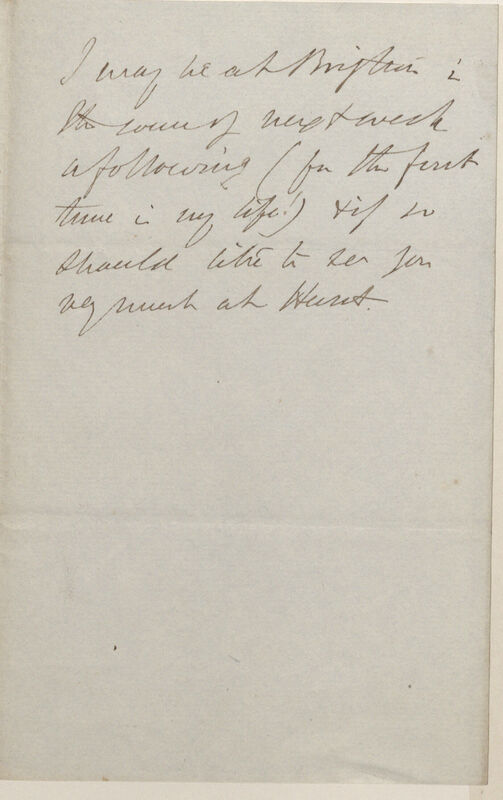 I may be at Brighton in
the course of next week
or following (for the first
time in my life!) & if so
should like to see you
very much at Hurst.